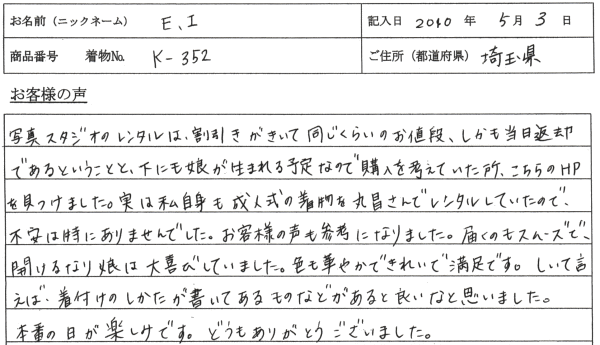 お名前（ニックネーム） E.I 記入日 2010 年 5月 3 日
商品番号 着物No. K-352 ご住所（都道府県） 埼玉県
お客様の声
写真スタジオのレンタルは、割引きがきいて同じくらいのお値段、しかも当日返却
であるということと、下にも娘が生まれる予定なので購入を考えていた所、こちらのHP
を見つけました。実は私自身も成人式の着物を丸昌さんでレンタルしていたので、
不安は特にありませんでした。お客様の声も参考になりました。届くのもスムーズで、
開けるなり娘は大喜びしていました。色も華やかできれいで満足です。しいて言
えば、着付けのしかたが書いてあるものなどがあると良いなと思いました。
本番の日が楽しみです。どうもありがとうございました。